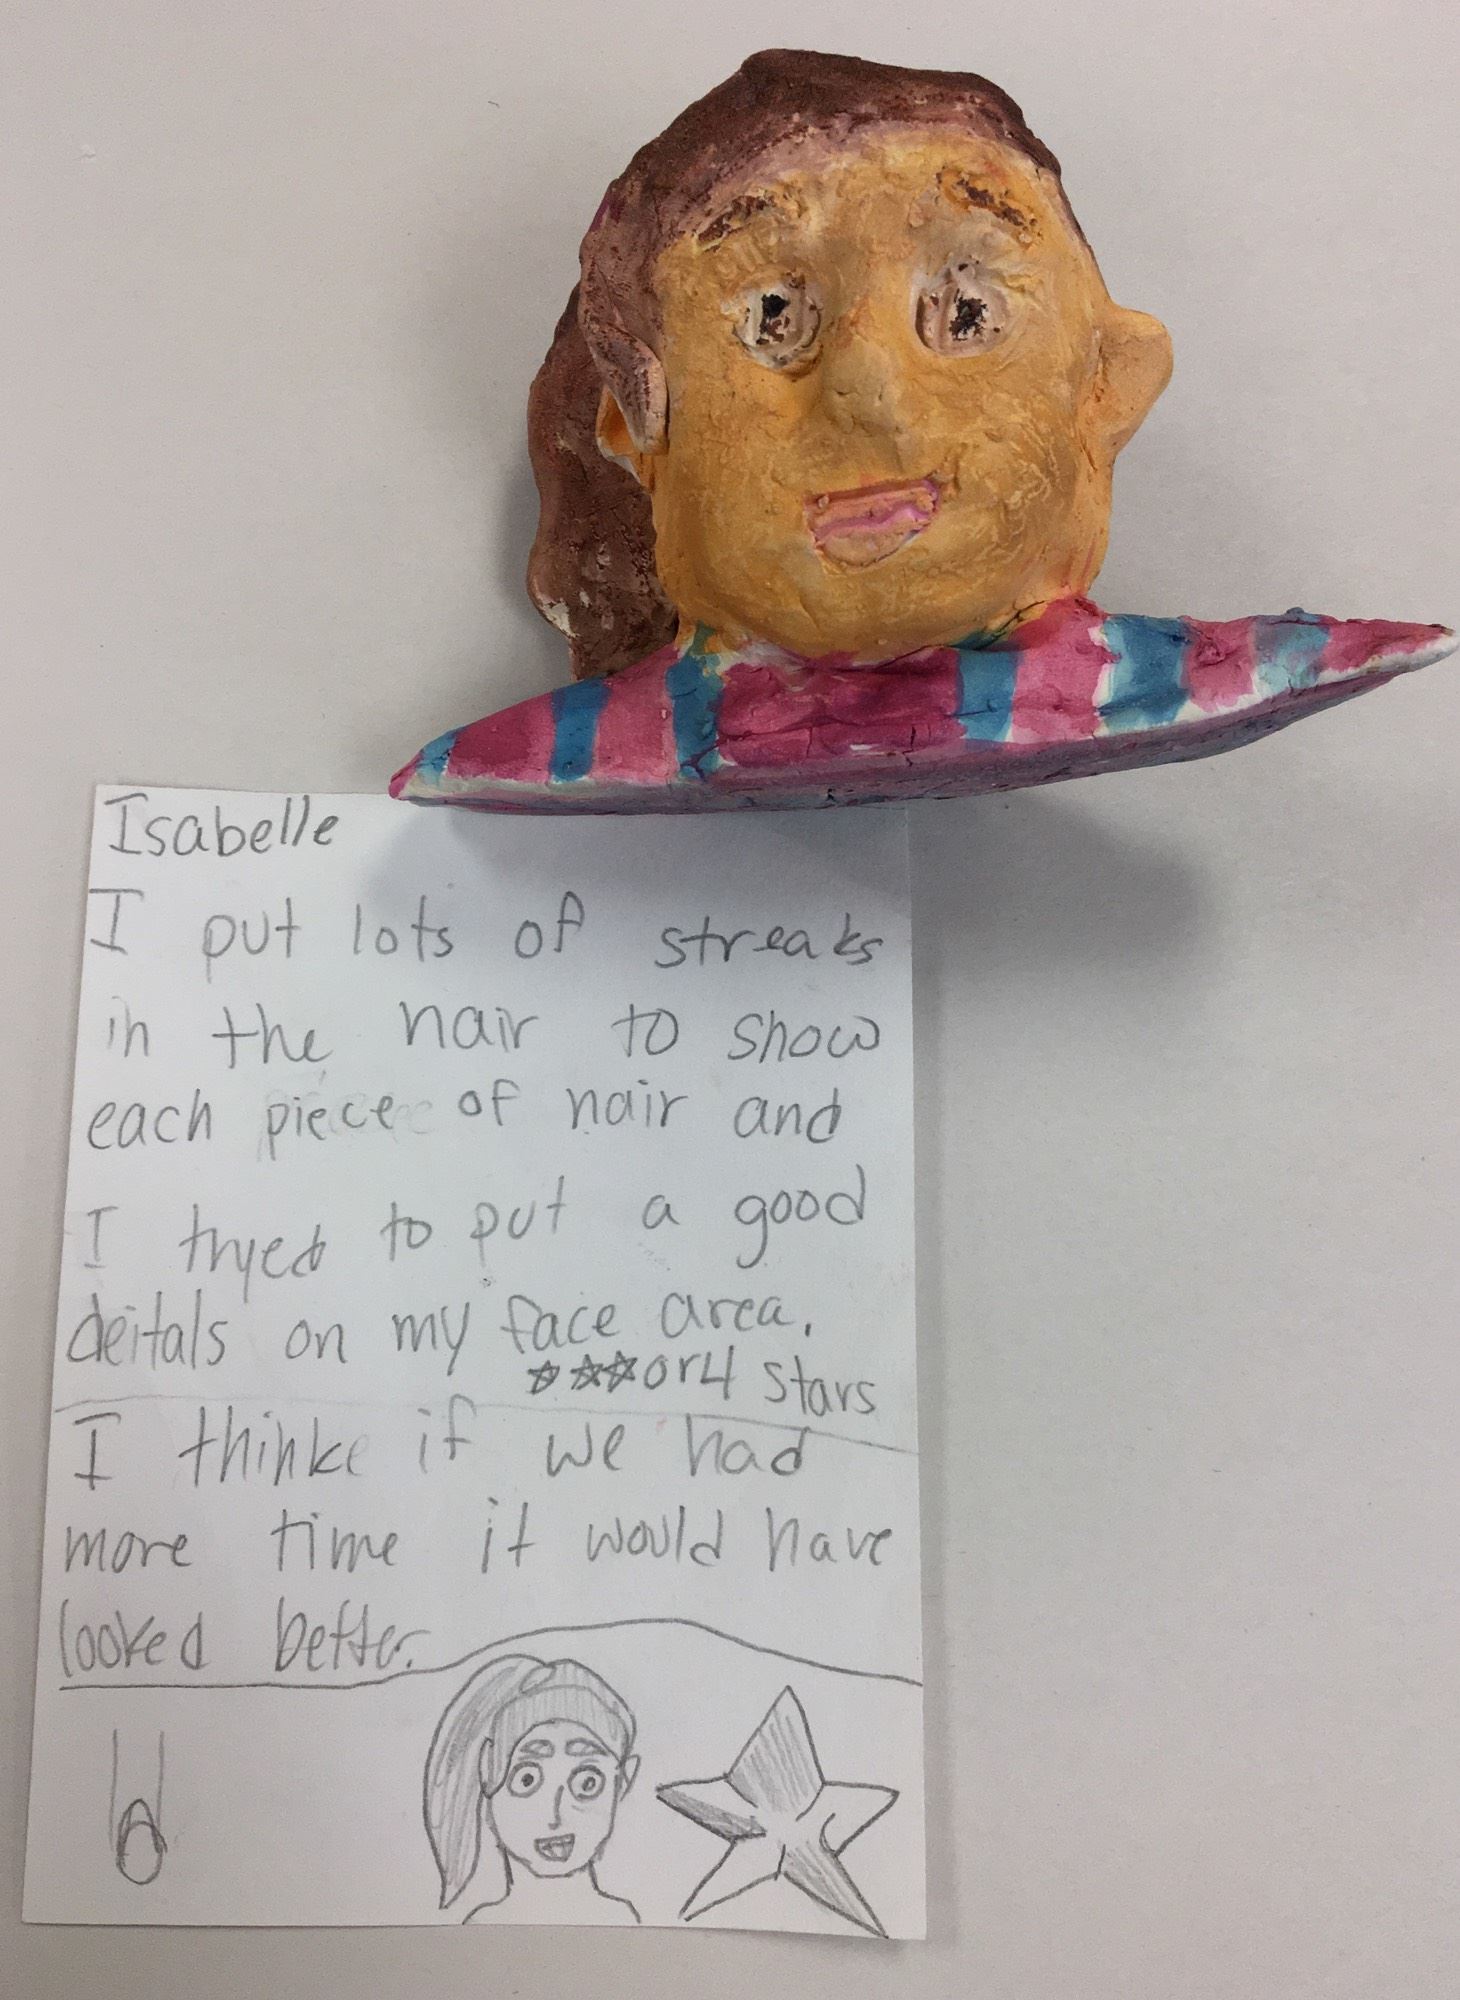 Isabelle
I put lots of streaks
in the hair to show
each piece of hair and
I tryed to put a good
deitals on my face area.
☆☆☆or4 stars
I thinke if we had
more time it would have
looked better.